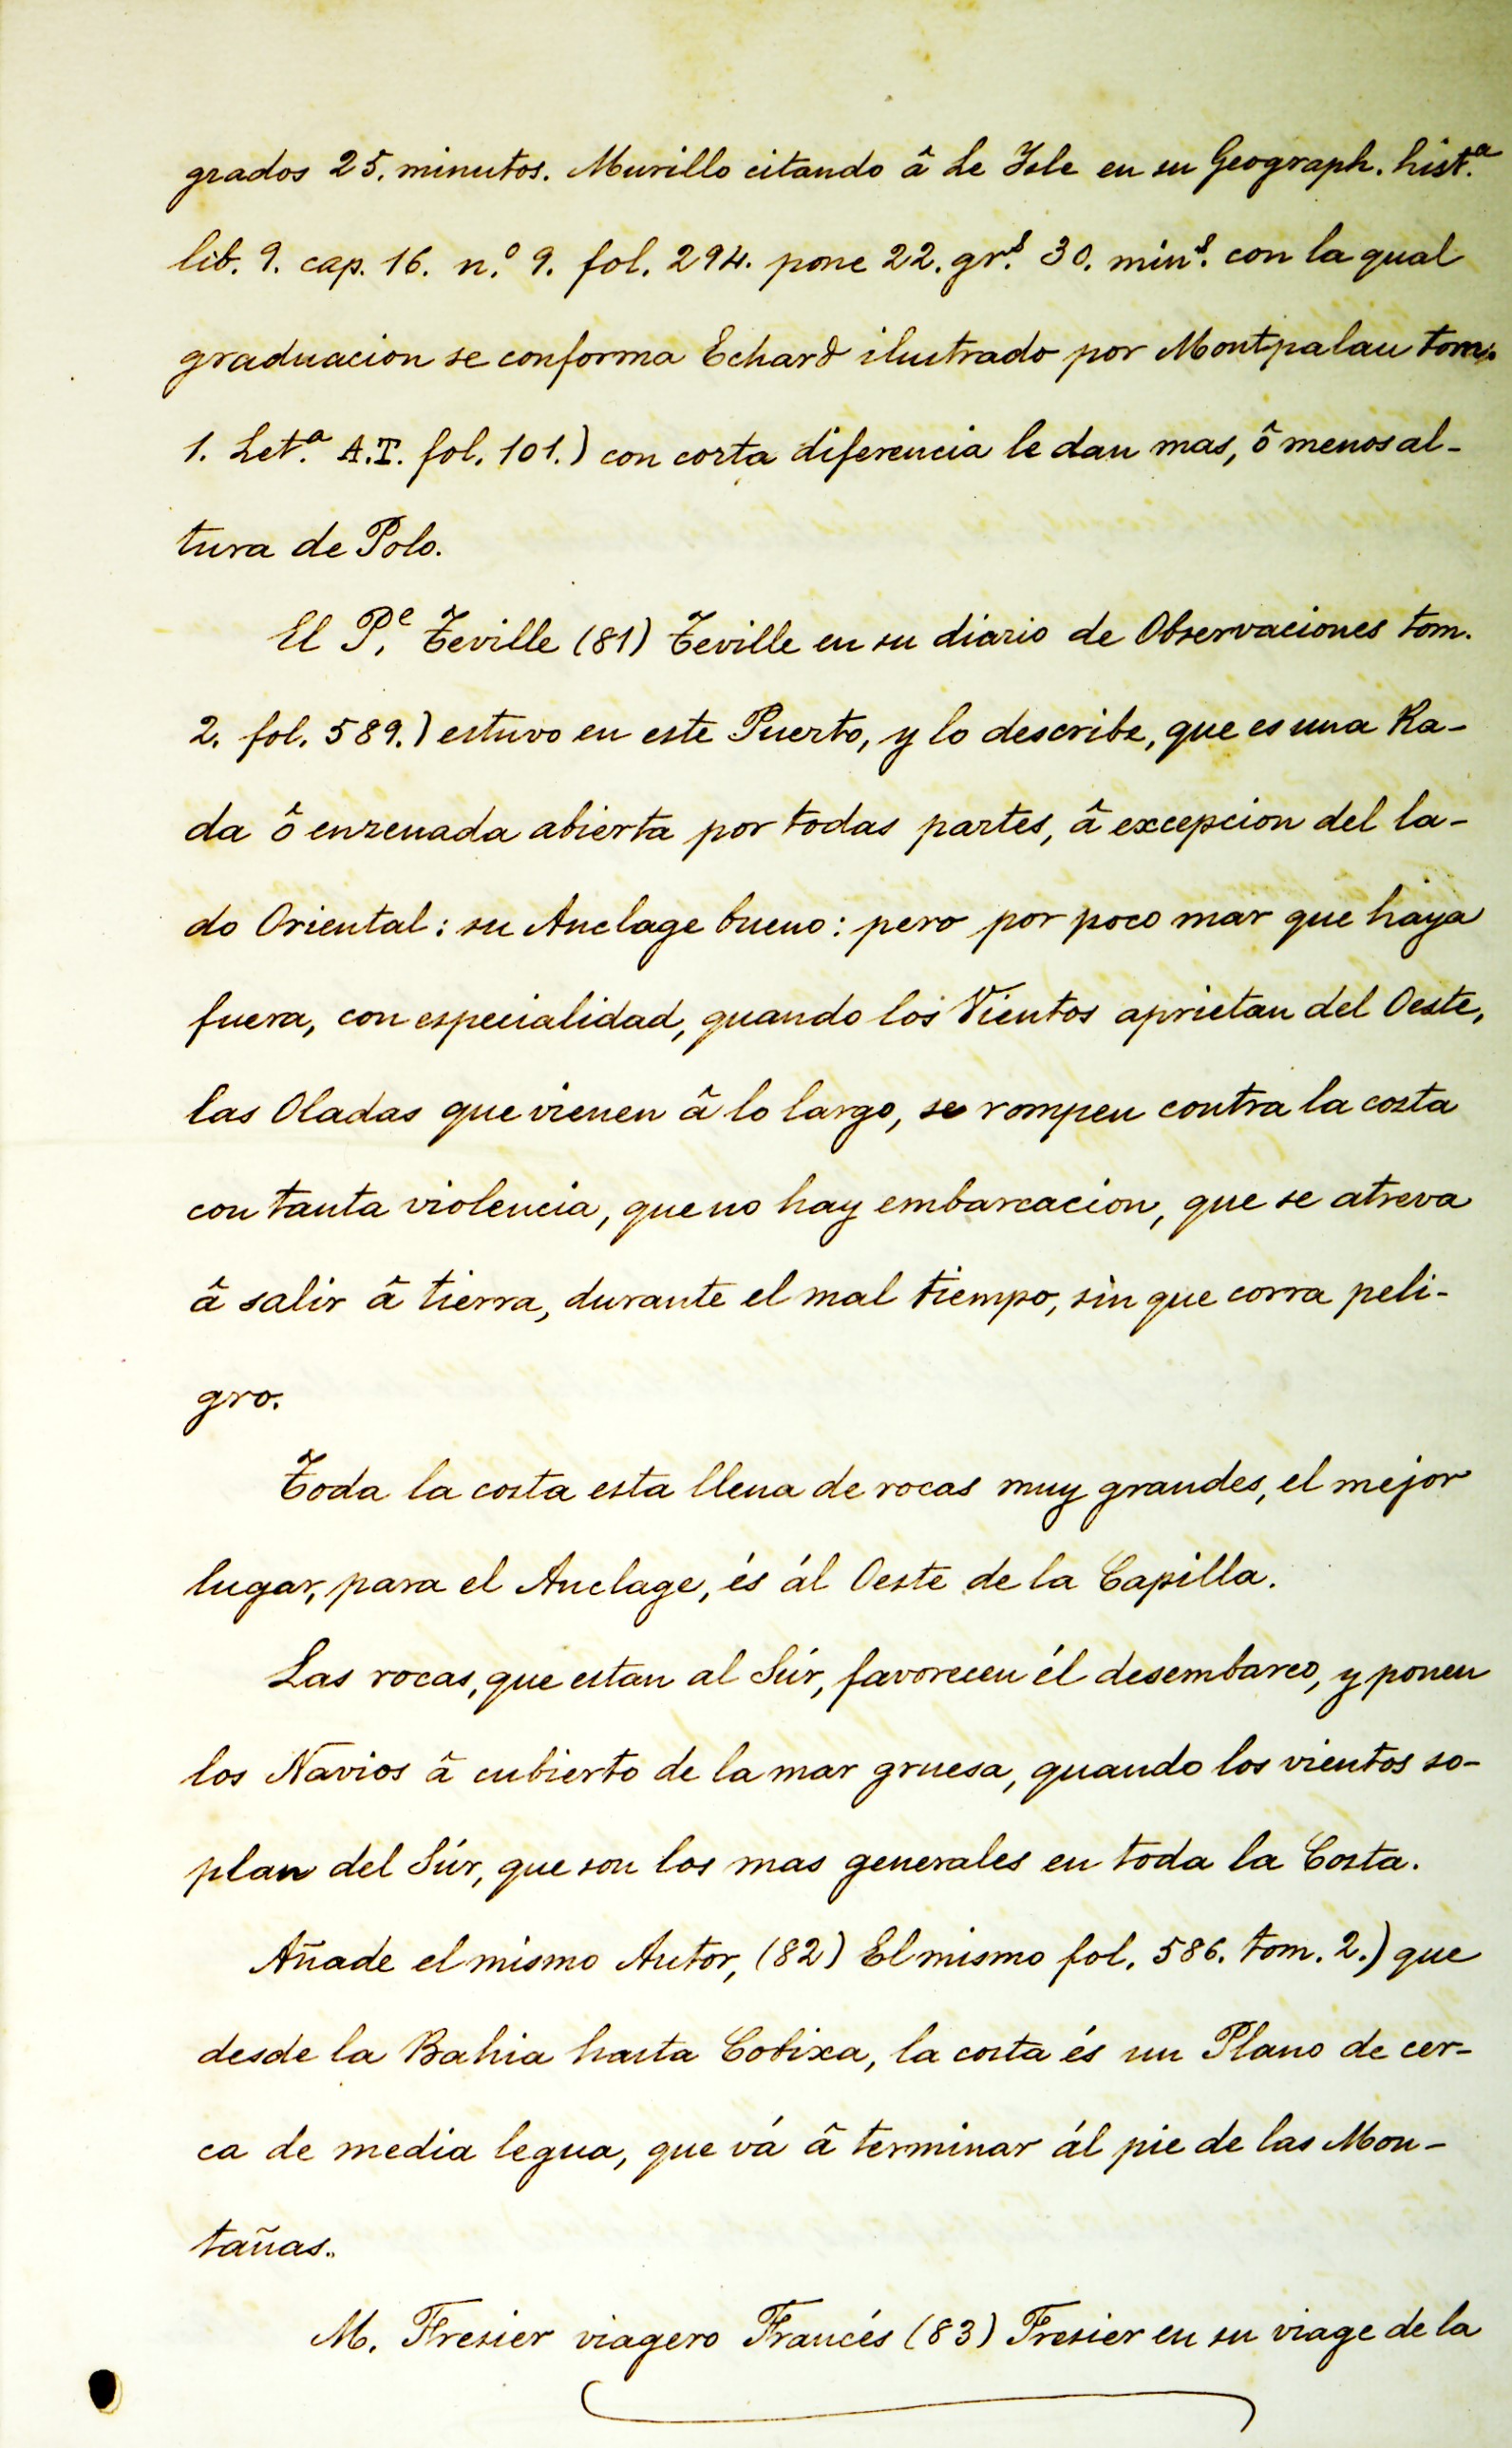 grados 25. minutos. Murillo citando â Le Isle en su Geograph. hist.ª
lib. 9. cap. 16. n.º 9. fol. 294. pone 22. gr.s 30. min.s con la qual
graduacion se conforma Echard ilustrado por Montpalau tom.
1. Let.ª A.T. fol. 101.) con corta diferencia le dan mas, ô menos al-
tura de Polo.
El P.e Teville (81) Teville en su diario de Observaciones tom.
2. fol. 589.) estuvo en este Puerto, y lo describe, que es una Ra-
da ô enzenada abierta por todas partes, â excepcion del la-
do Oriental: su Anclage bueno: pero por poco mar que haya
fuera, con especialidad, quando los Vientos aprietan del Oeste,
las Oladas que vienen â lo largo, se rompen contra la costa
con tanta violencia, que no hay embarcacion, que se atreva
â salir â tierra, durante el mal tiempo, sin que corra peli-
gro.
Toda la costa esta llena de rocas muy grandes, el mejor
lugar, para el Anclage, és ál Oeste de la Capilla.
Las rocas, que estan al Súr, favorecen él desembarco, y ponen
los Navios â cubierto de la mar gruesa, quando los vientos so-
plan del Súr, que son los mas generales en toda la Costa.
Añade el mismo Autor, (82) El mismo fol. 586. tom. 2.) que
desde la Bahia hasta Cobixa, la costa és un Plano de cer-
ca de media legua, que vá â terminar ál pie de las Mon-
tañas.
M. Fresier viagero Francés (83) Fresier en su viage de la